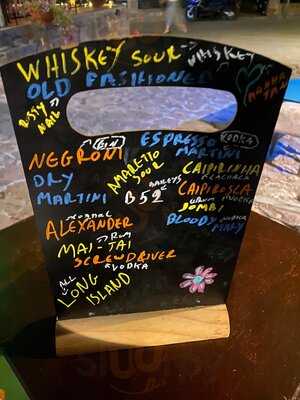 WHISKEY SOUR → WHISKEY
OLD FASHIONED
RUSTY NAIL
NEGRONI → GIN
ESPRESSO MARTINI
VODKA
DRY MARTINI
AMARETTO SOUR
CAIPIRINHA
CACHACA
BAILEYS
B52
CAIPIROSCA
VODKA
ZOMBI
COGNAC
ALEXANDER
BLOODY MARY
VODKA
RUM
MAI-TAI
SCREWDRIVER
VODKA
ALL
LONG ISLAND